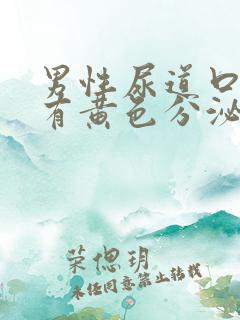 男性尿道口
有黄色分泌
荣偲玥
未经同意禁止转载